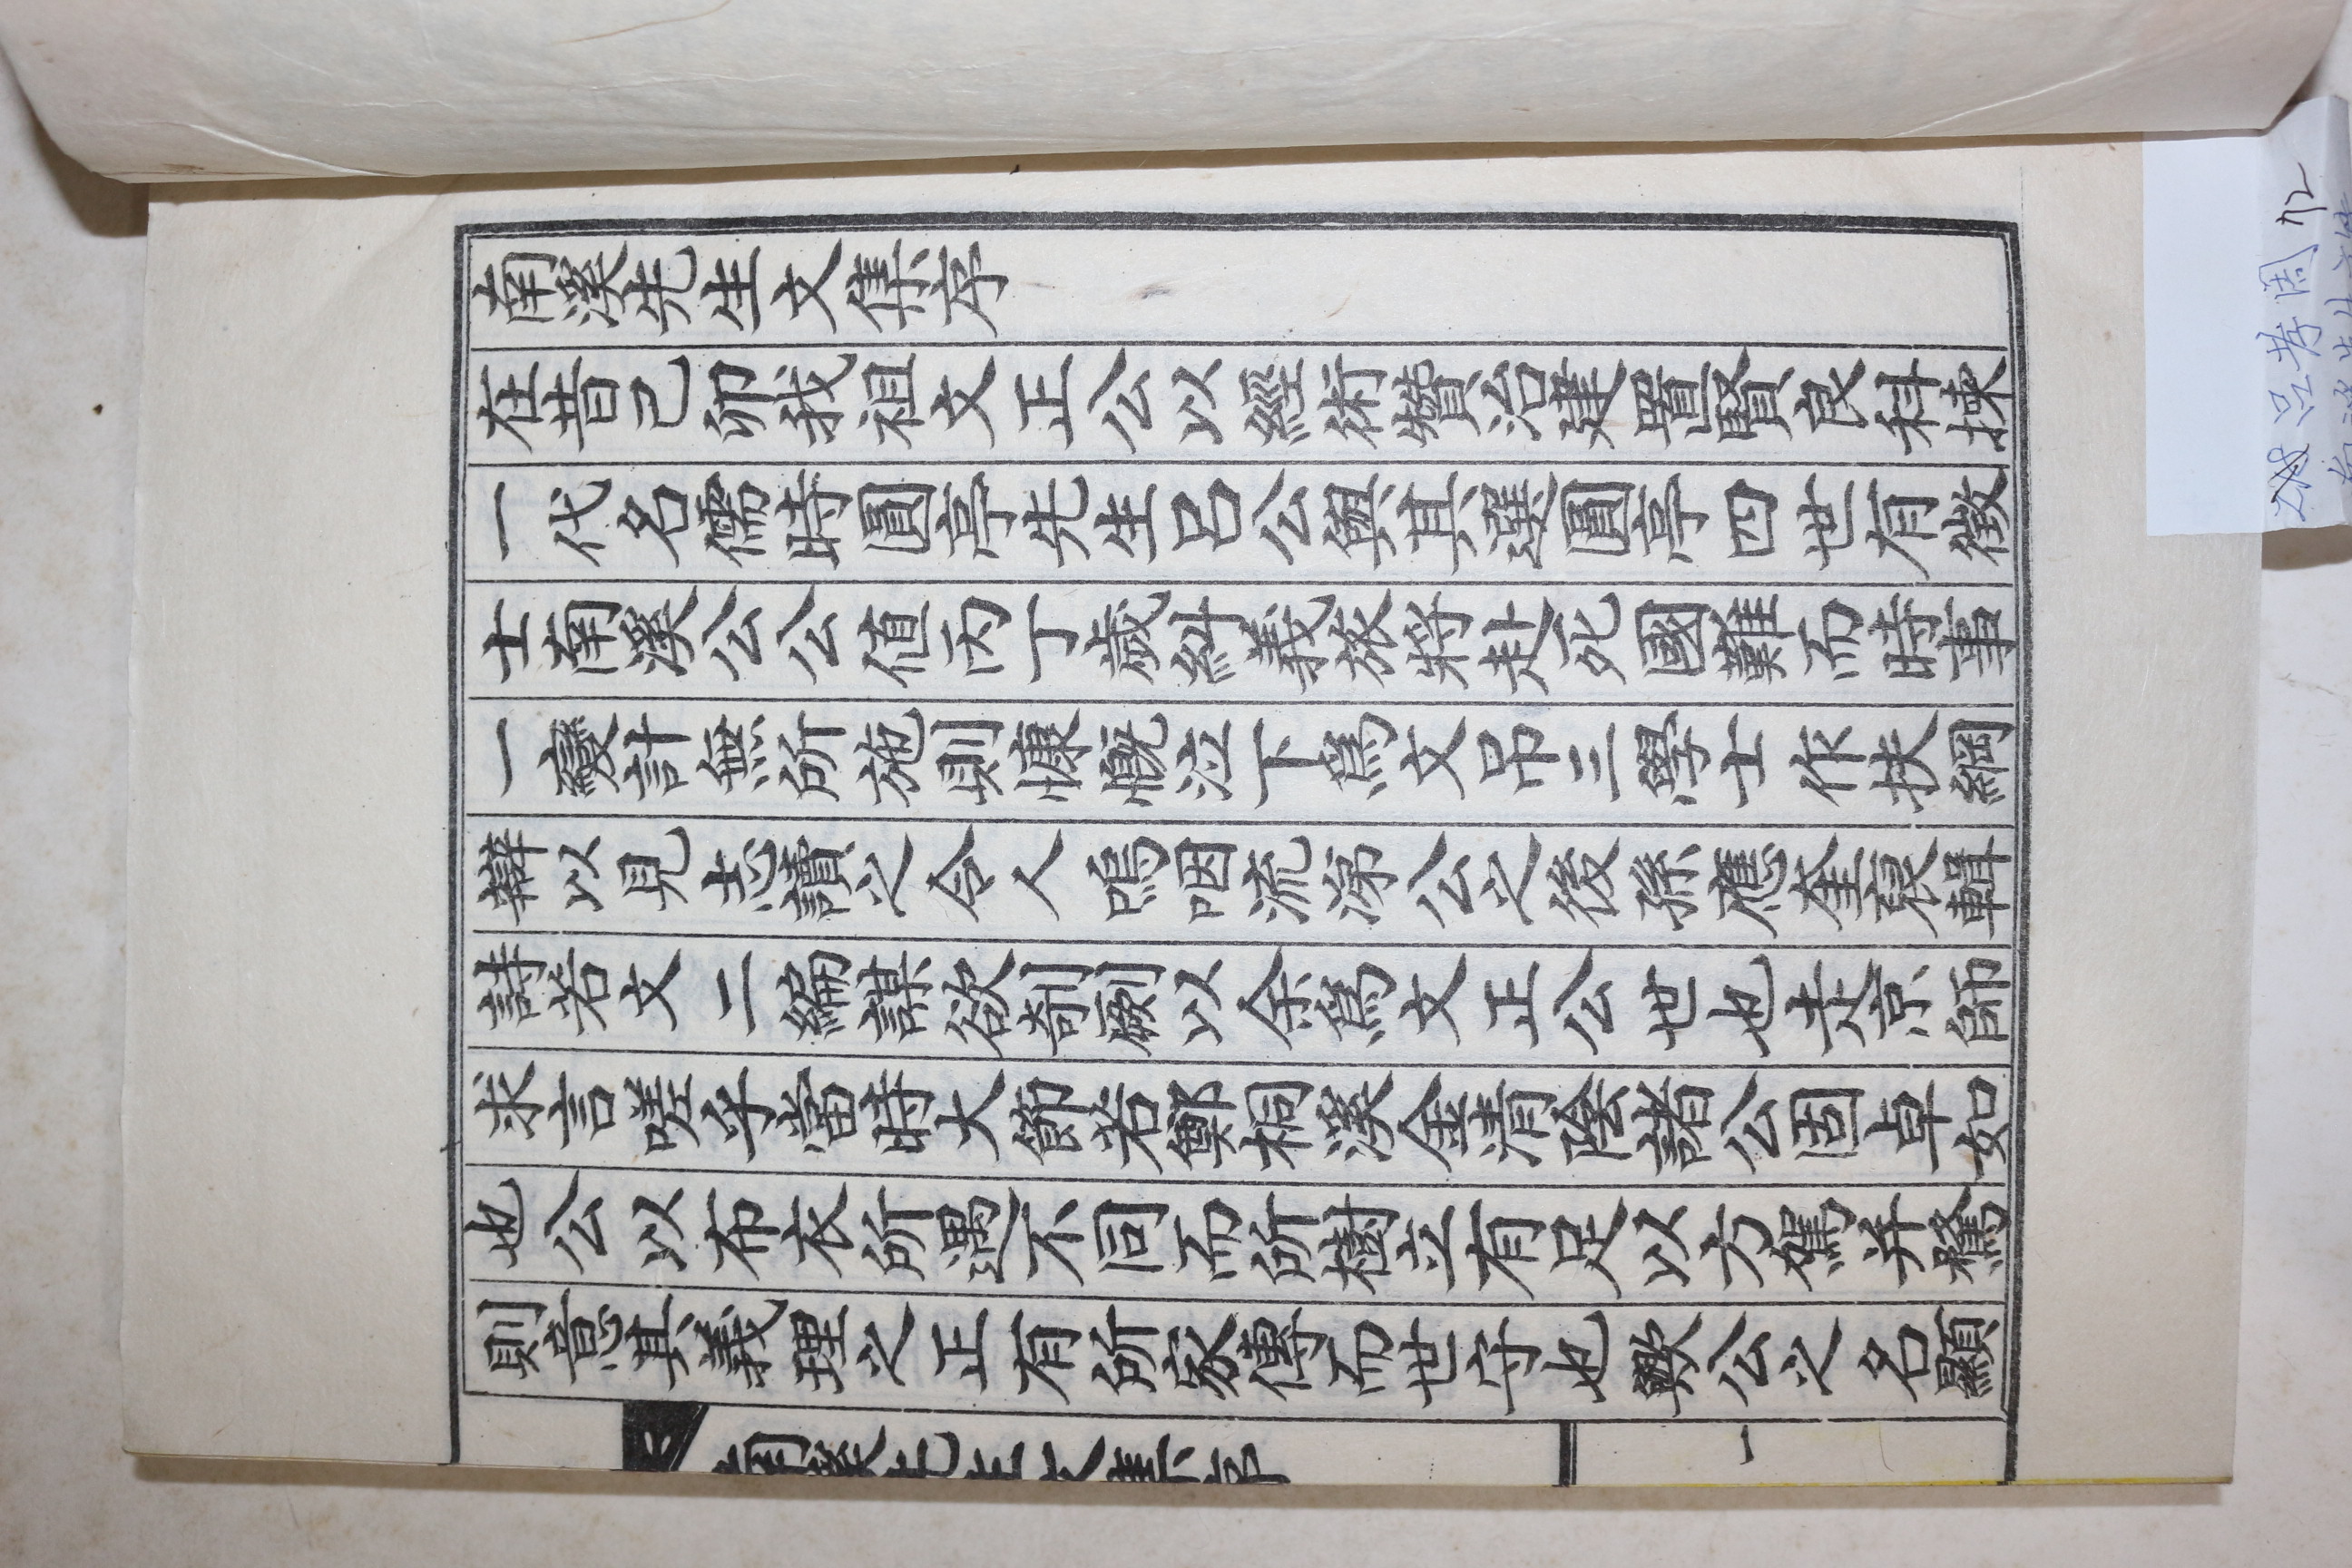 南溪先生文集序
在昔己卯我祖文正公以經術贊治建置賢良科揀
一代名儒時圓亭先生呂公與其選圓亭四世有徵
士南溪公公值丙丁歲糾義旅將赴死國難而時事
一變計無所施則慷慨泣下爲文吊三學士作扶綱
辭以見志讀之令人嗚咽流涕公之後孫應奎裒輯
詩若文二編謀欲剞劂以余爲文正公世也走京師
求言嗟乎當時大節若鄭桐溪金淸陰諸公固卓如
也公以布衣所遇不同而所樹立有足以方駕并騖
則意其義理之正有所家傳而世守也歟公之名顯
南溪先生文集序
一